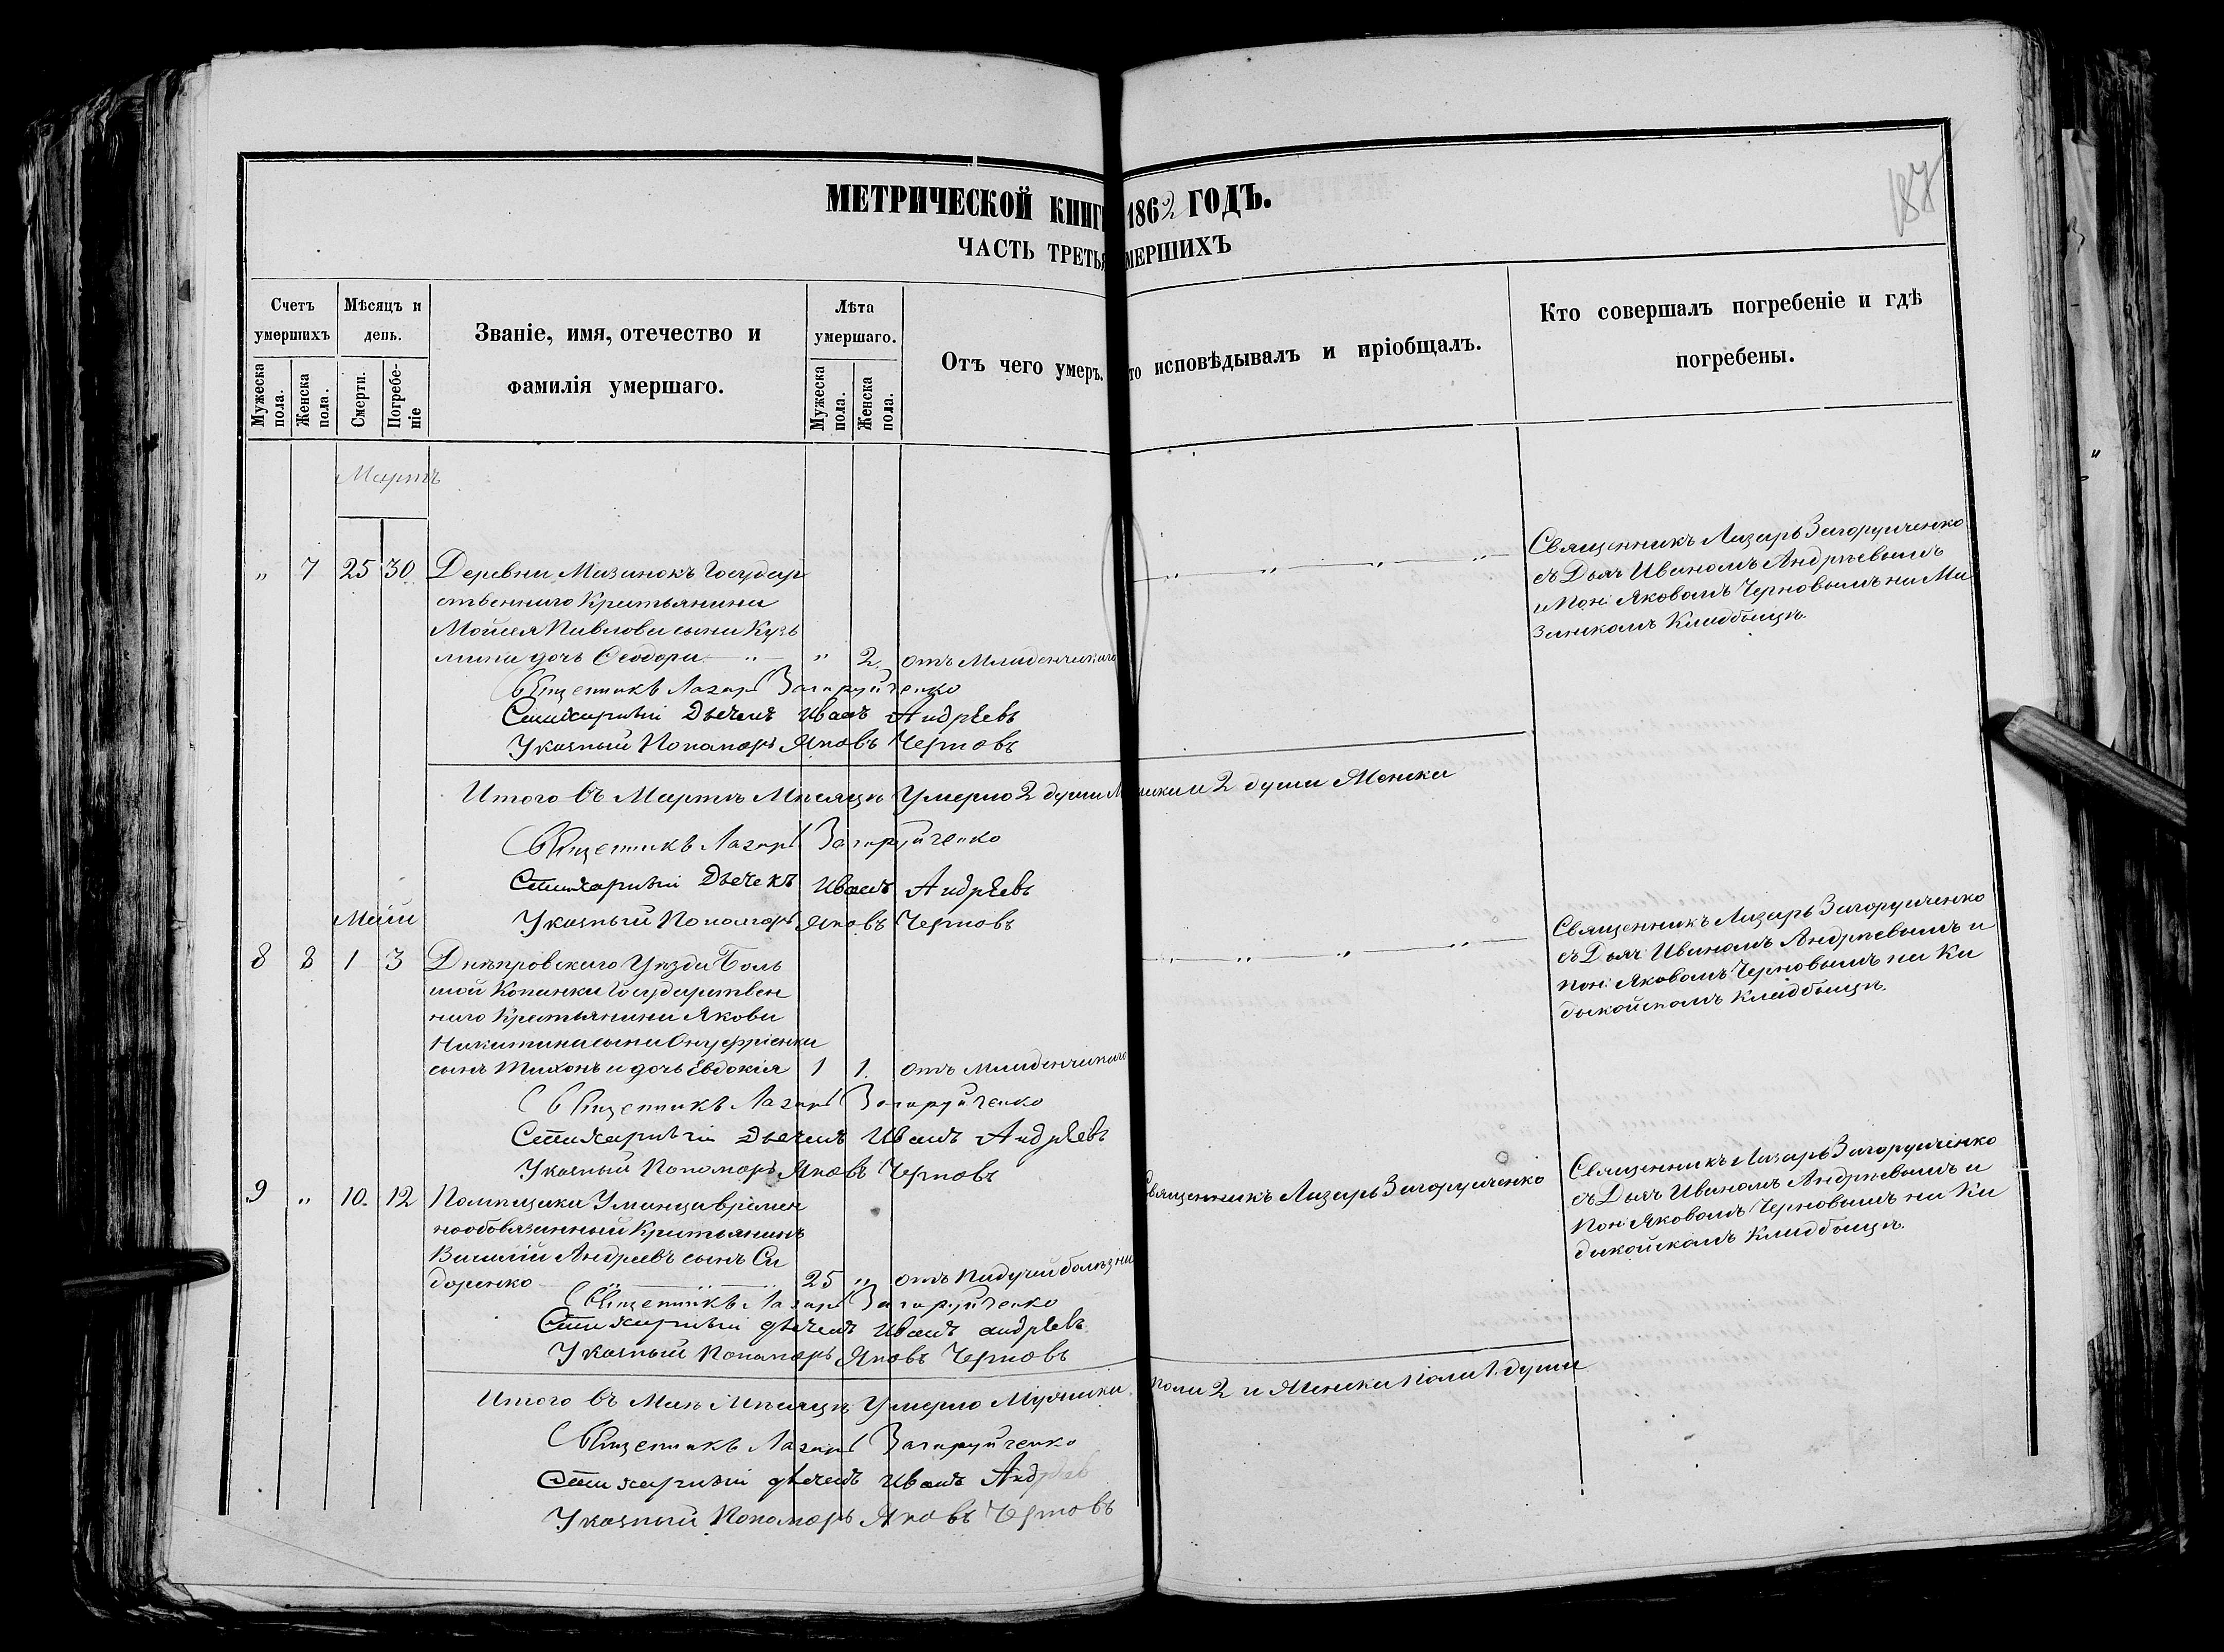 187
МЕТРИЧЕСКОЙ КНИГ 1862 ГОДЪ.
ЧАСТЬ ТРЕТЬЯ МЕРШИХЪ
Счетъ умершихъ
Мужеска пола.
Женска пола.
Мѣсяцъ и день.
Смерти.
Погребе-ніе
Званіе, имя, отечество и
фамилія умершаго.
Лѣта умершаго.
Мужеска пола.
Женска пола.
Отъ чего умеръ.
то исповѣдывалъ и пріобщалъ.
Кто совершалъ погребеніе и гдѣ
погребены.
Мартъ
„ 7 25 30 Деревни Мазинокъ Государ
ственнаго Крестьянина
Мойсея Павлова сына Кузь
мина дочь Ѳеодора „ 2. отъ Младенческаго
Священникъ Лазарь Загоруйченко
съ Дьяч Иваномъ Андреевымъ
и Пон: Яковомъ Черновымъ на Ма
зинкомъ Кладбищѣ.
Священникъ Лазарь Загоруйченко
Стихарный Дьячекъ Иванъ Андрѣевъ
Указный Пономарь Яковъ Черновъ
Итого въ Мартѣ Мѣсяцѣ Умерло 2 души М ска и 2 души Женска
Священникъ Лазарь Загоруйченко
Стихарный Дьячекъ Иванъ Андрѣевъ
Указный Пономарь Яковъ Черновъ
Маія
8 8 1 3 Днѣпровскаго Уѣзда Боль
шой Копанки Государствен
наго Крестьянина Якова
Никитина сына Онуфріенка
сынъ Тихонъ и дочь Евдокія 1 1. отъ Младенческаго
Священникъ Лазарь Загоруйченко
съ Дьяч: Иваномъ Андреевымъ и
Пон: Яковомъ Черновымъ на Ка
дыкойскомъ Кладбищѣ.
Священникъ Лазарь Загоруйченко
Стихарный Дьячекъ Иванъ Андрѣевъ
Указный Пономарь Яковъ Черновъ
9 „ 10. 12 Помѣщика Уманца времен
нообовязанный Крестьянинъ
Василій Андреевъ сынъ Си
доренко 25 „ отъ Падучей болѣзни
Священникъ Лазарь Загоруйченко
Священникъ Лазарь Загоруйченко
съ Дьяч Иваномъ Андреевымъ и
Пон: Яковомъ Черновымъ на Ка
дыкойскомъ Кладбищѣ.
Священникъ Лазарь Загоруйченко
Стихарный дьячекъ Иванъ андрѣевъ
Указный Пономарь Яковъ Черновъ
Итого въ Маѣ Мѣсяцѣ Умерло Мужеска пола 2 и Женска пола 1. душа
Священникъ Лазарь Загоруйченко
Стихарный дьячекъ Иванъ Андрѣев
Указный Пономарь Яковъ Черновъ